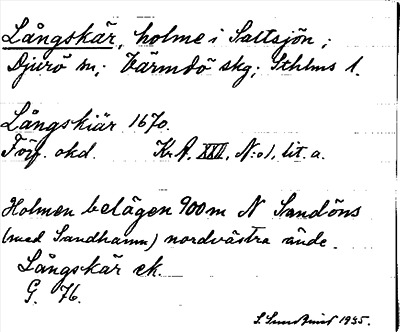 Långskär, holme i Saltsjön;
Djurö sn; Värmdö skg; Sthlms l.
Långskiär 1670.
Förf. okd. Kr A. XXII, N:o 1, lit. a.
Holmen belägen 900 m N Sandöns
(med Sandhamn) nordvästra ände.
Långskär ek.
G. 76.
1935.